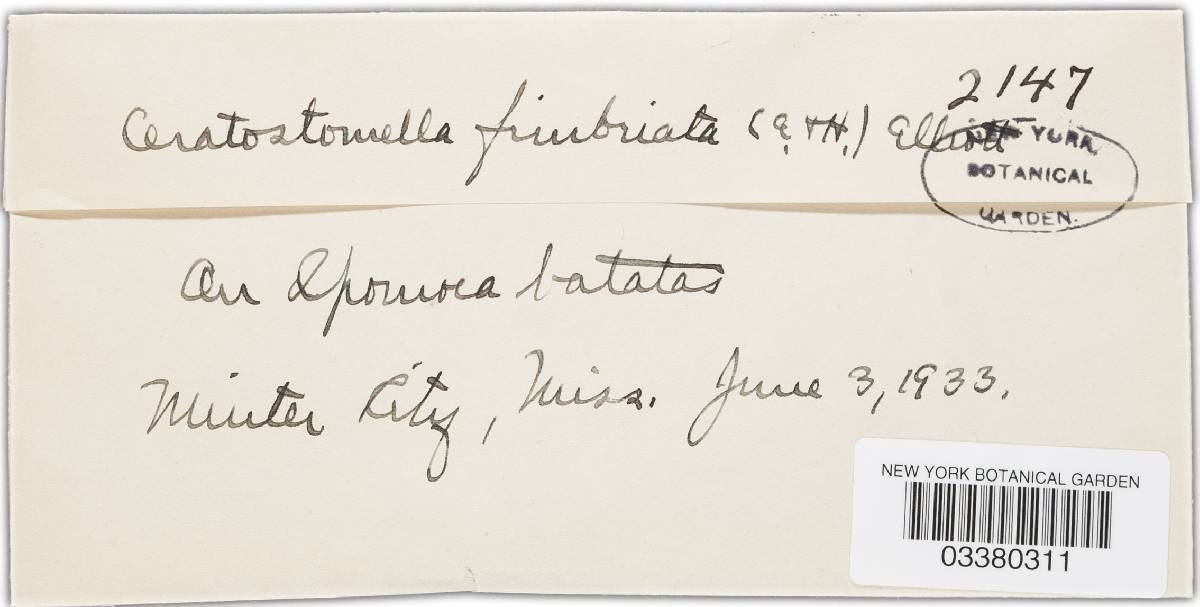 2147
Ceratostomella fimbriata (E. & H.) Elliott
NEW YORK
BOTANICAL
GARDEN.
On Ipomoea batatas
Minter City, Miss. June 3, 1933.
NEW YORK BOTANICAL GARDEN
03380311